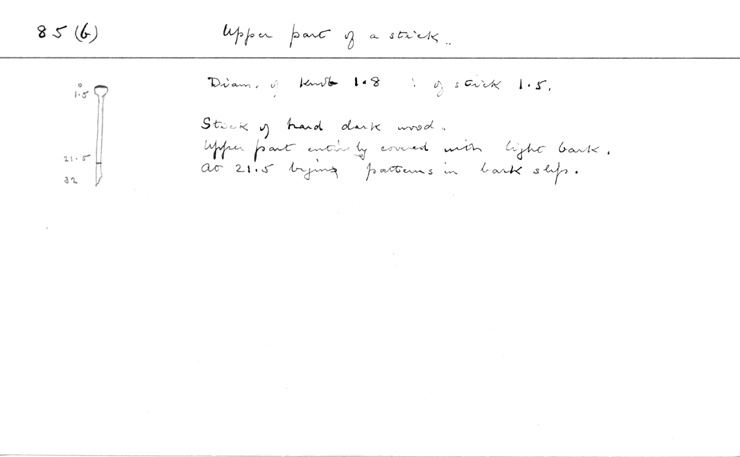 85 (b) Upper part of a stick..
0
1.5
21.5
32
Diam. of knob 1.8 : of stick 1.5.
Stick of hard dark wood.
Upper part entirely covered with light bark.
At 21.5 begins patterns in bark slip.